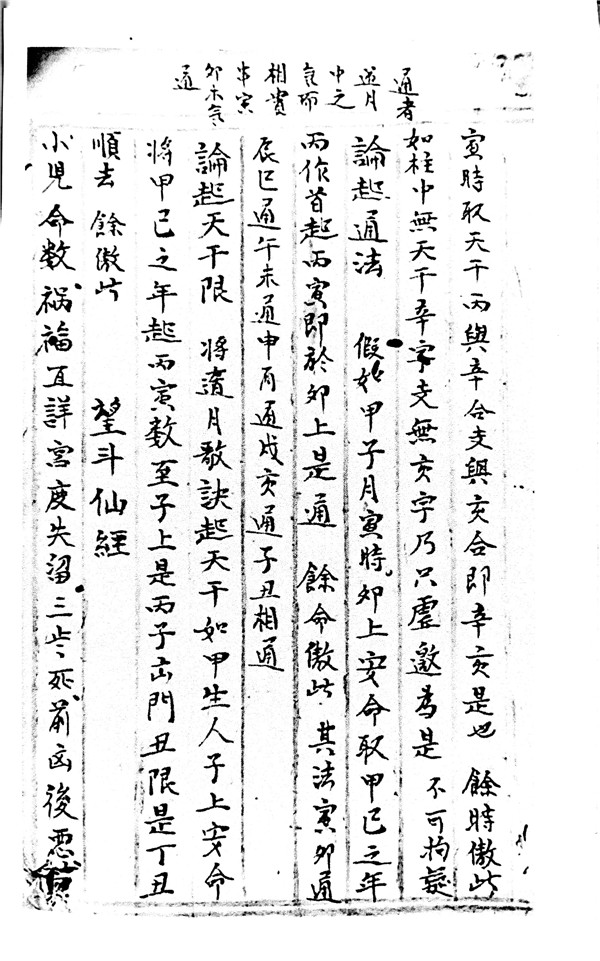 通者
逆月
中之
氣而
相貫
串寅
卯木氣
通
寅時取天干丙與辛合支與亥合即辛亥是也 餘時倣此
如柱中無天干辛字支無亥字乃只虛邀為是 不可拘疑
論起通法 假如甲子月寅時卯上安命取甲己之年
丙作首起丙寅即於卯上是通 餘命倣此 其法寅卯通
辰巳通午未通申酉通戌亥通子丑相通
論起天干限 將遁月歌訣起天干如甲生人子上安命
將甲己之年起丙寅数至子上是丙子出門丑限是丁丑
順去 餘倣此 望斗仙經
小児命数祸福互詳宮度失留三步死前凶後悪